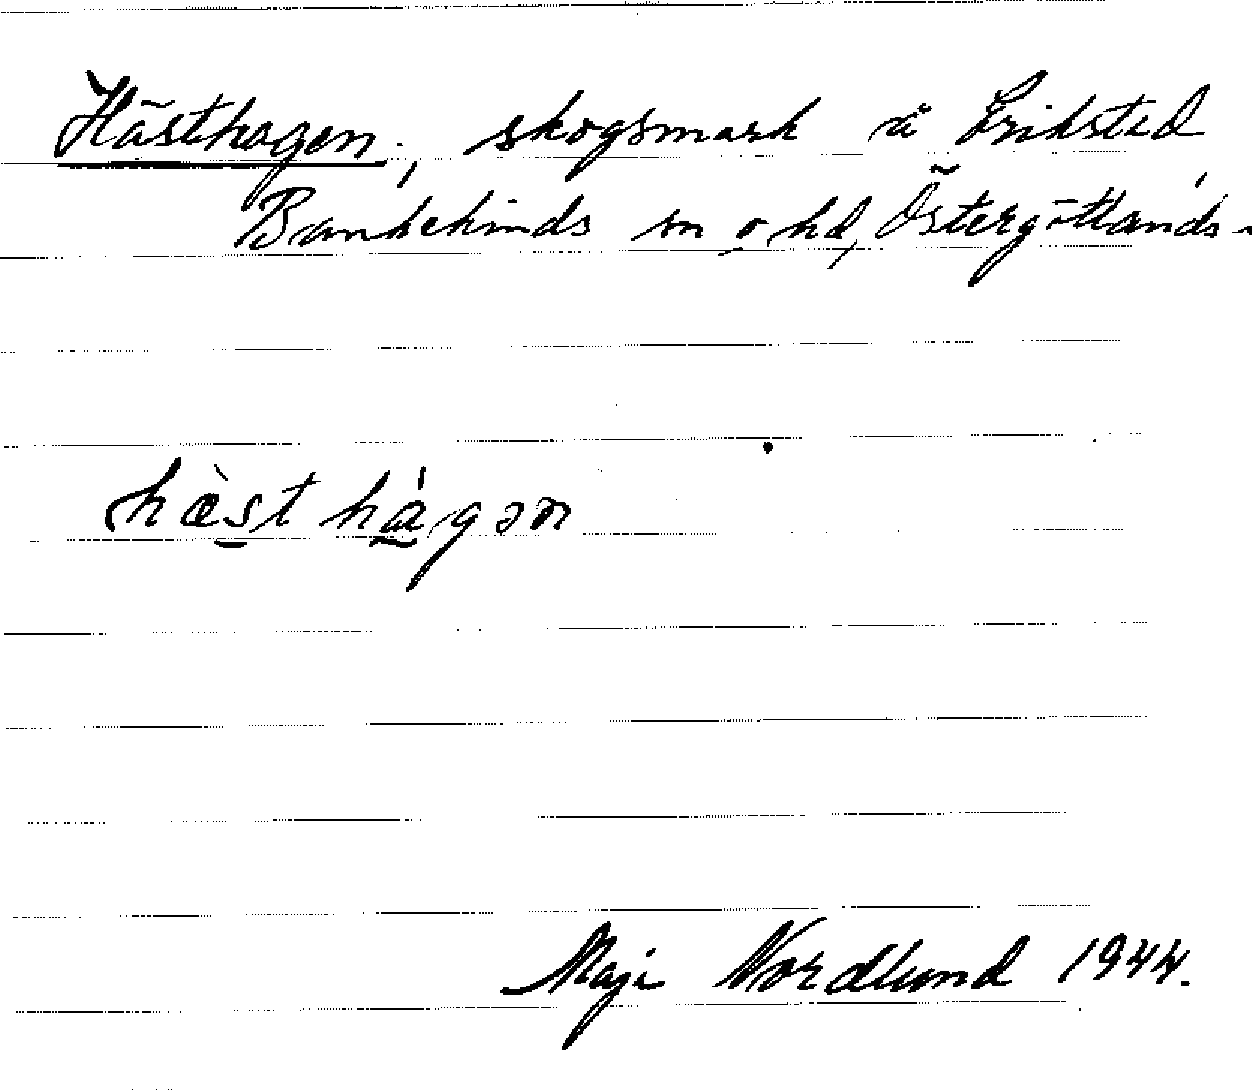 Hästhagen, skogsmark å Frikstad,
Bankekinds sn o hd, Östergötlands.
hæ̀st há̱gən
Maji Nordlund 1944.